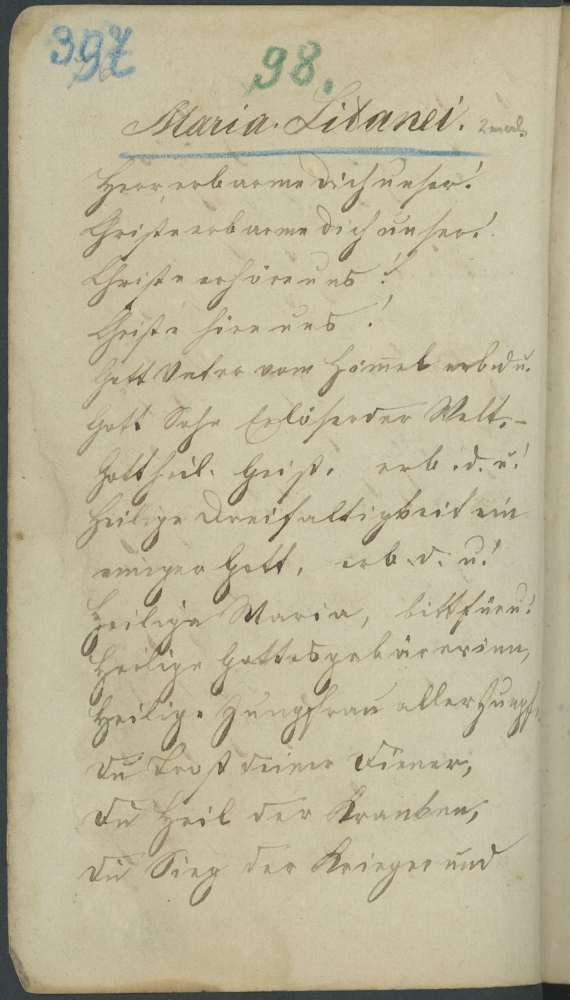 397
98.
Maria. Litanei. 2 mal.
Herr, erbarme Dich unser!
Christe erbarme Dich unser!
Christe erhöre uns!
Christe höre uns!
Gott Vater vom Himmel erb. d. u.
Gott Sohn Erlöser der Welt, –
Gott heil. Geist, erb. d. u.!
Heilige Dreifaltigkeit ein
einiger Gott, erb. d. u.!
Heilige Maria, bitt für u.!
Heilige Gottesgebärerinn,
Heilige Jungfrau aller Jungf
Du Trost deiner Diener,
Du Heil der Kranken,
Du Sieg der Krieger und